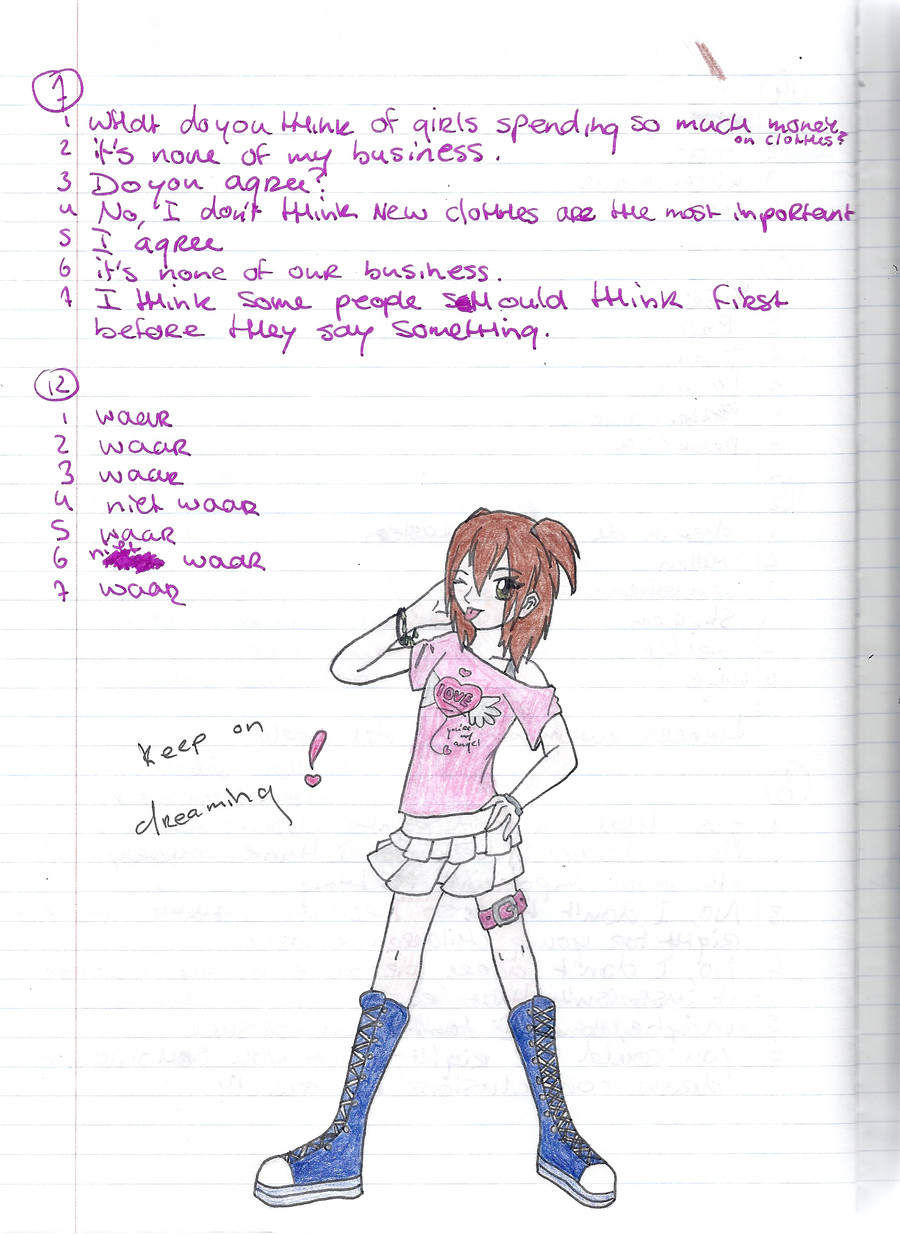 7
1 What do you think of girls spending so much money
on clothes?
2 it's none of my business.
3 Do you agree?
4 No, I don't think new clothes are the most important
5 I agree
6 it's none of our business.
7 I think some people should think first
before they say something.
12
1 waar
2 waar
3 waar
4 niet waar
5 waar
6 niet waar
7 waar
LOVE
you're
angel
keep on
dreaming !